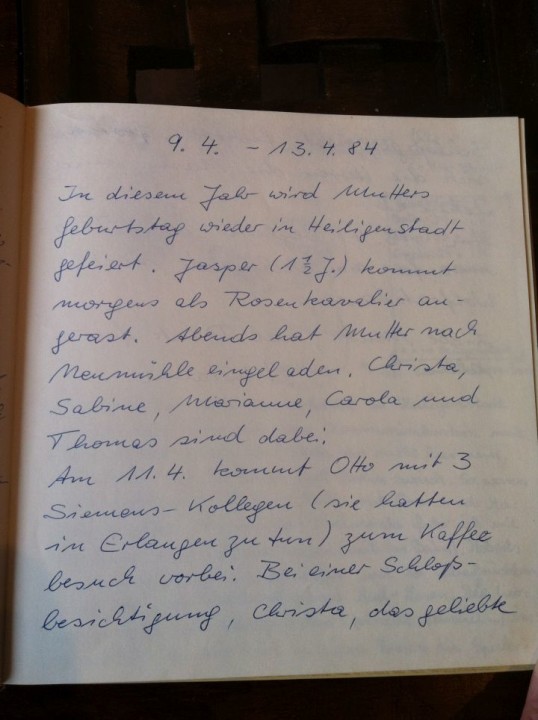 9. 4. - 13. 4. 84
In diesem Jahr wird Mutters
Geburtstag wieder in Heiligenstadt
gefeiert. Jasper (1 ½ J.) kommt
morgens als Rosenkavalier an-
gerast. Abends hat Mutter nach
Neumühle eingeladen. Christa,
Sabine, Marianne, Carola und
Thomas sind dabei.
Am 11. 4. kommt Otto mit 3
Siemens-Kollegen (sie hatten
in Erlangen zu tun) zum Kaffee
besuch vorbei. Bei einer Schloß-
besichtigung, Christa, das geliebte